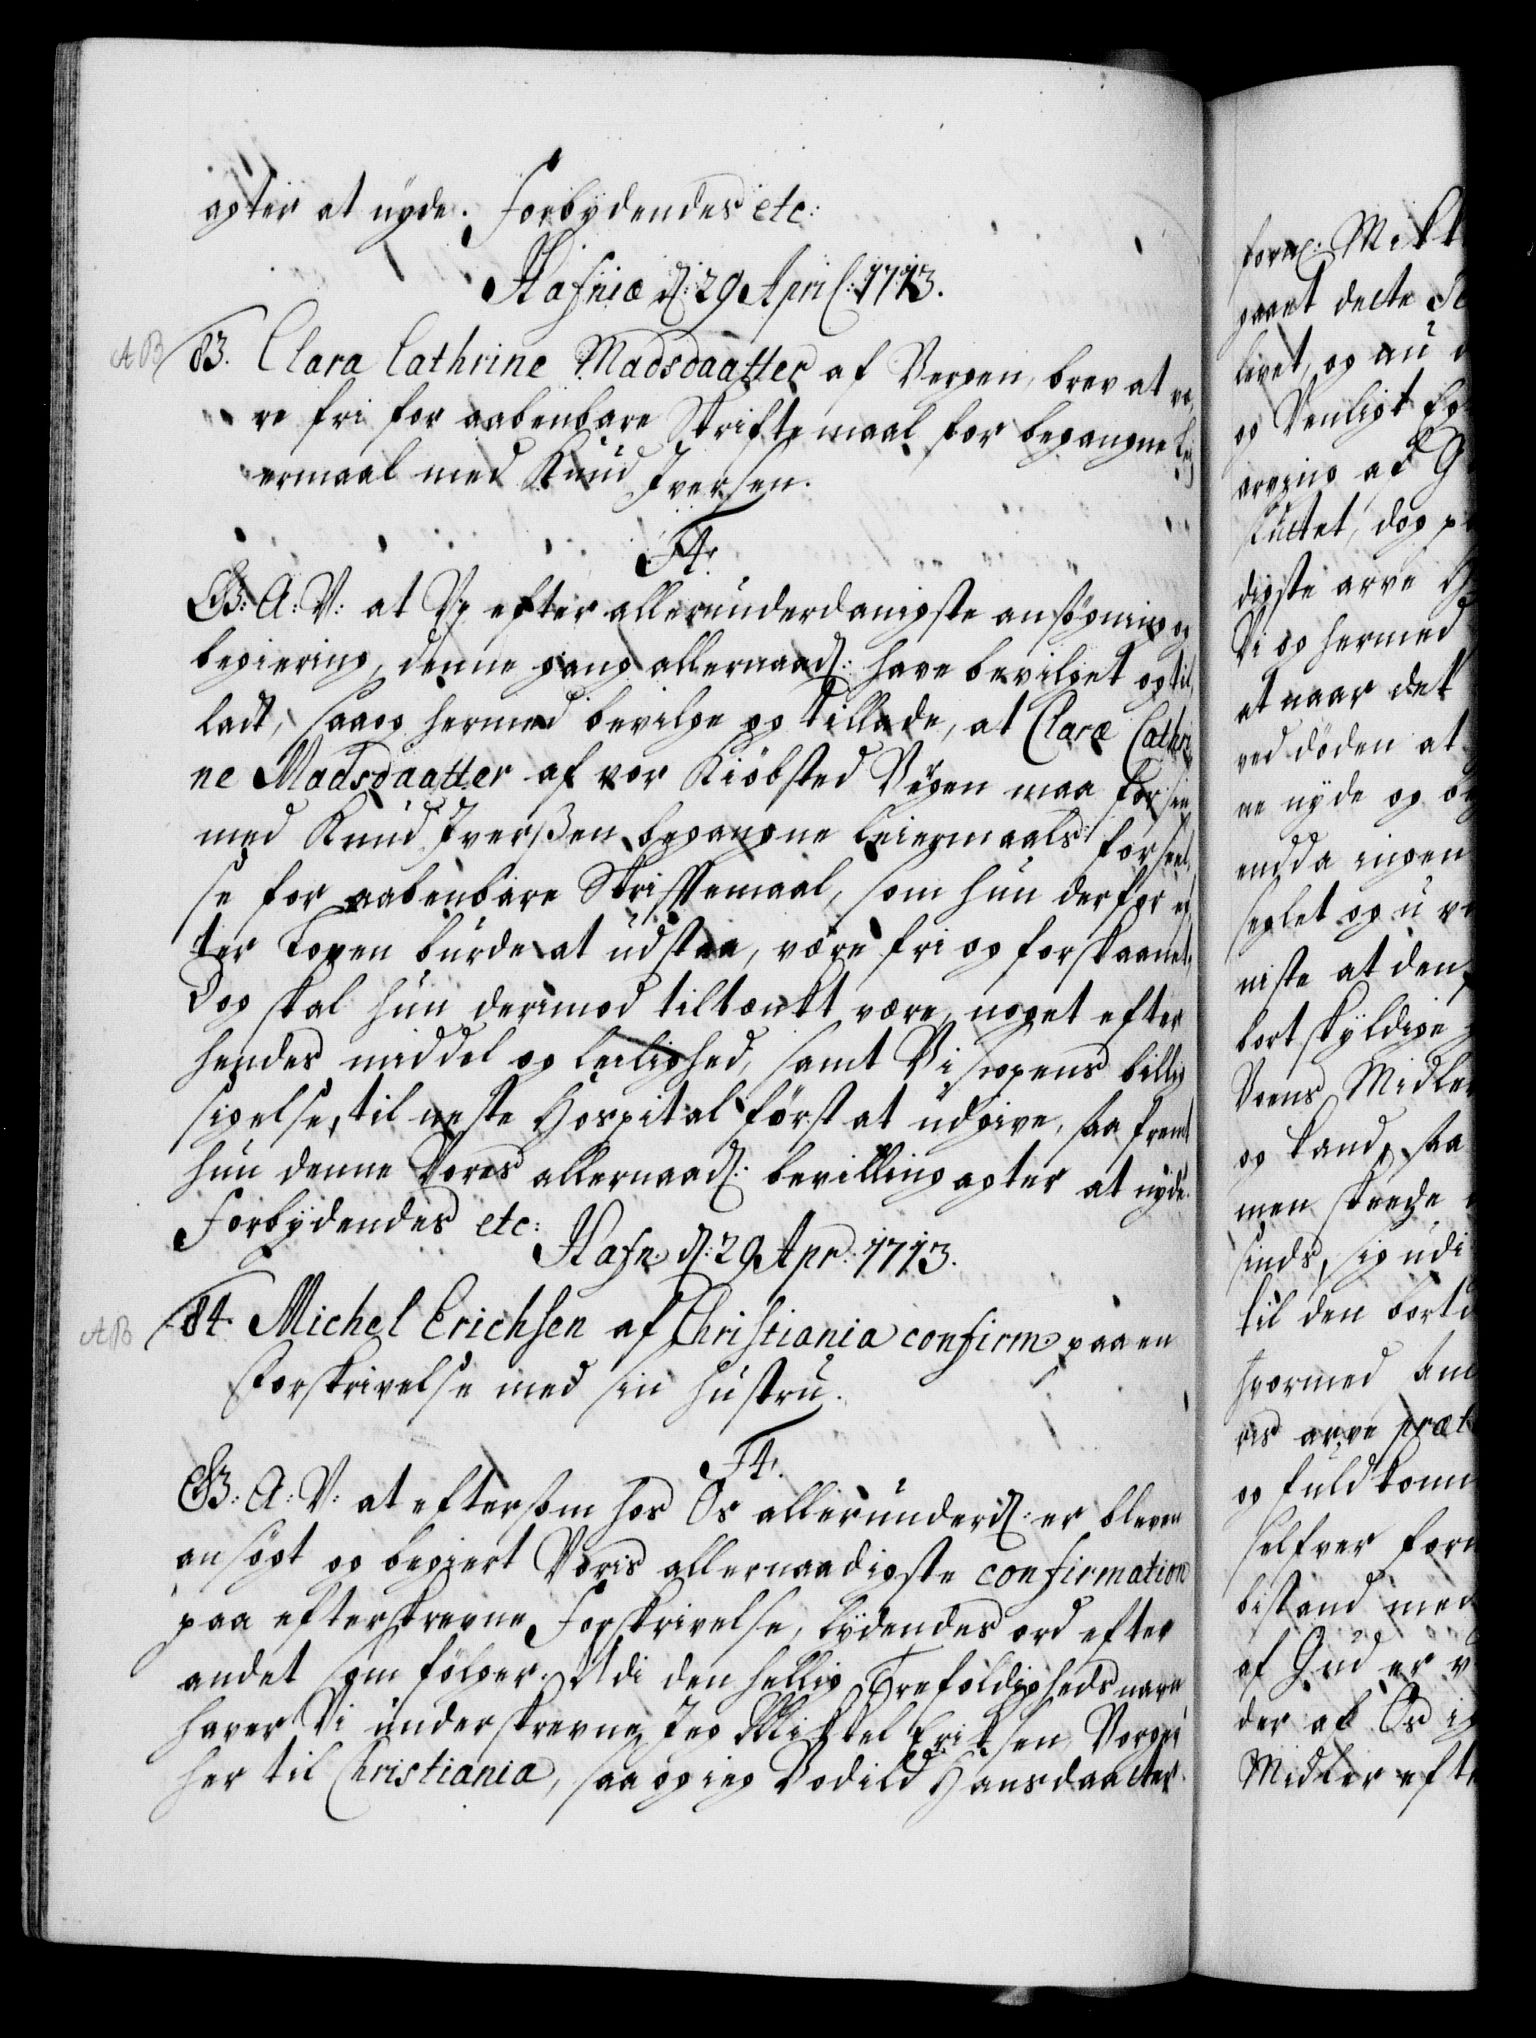 agter at nyde. Forbydendes etc:
Hafniæ d: 29 April: 1713.
AB 83. Clara Cathrine Madsdaatter af Bergen, brev at væ,
re fri for aabenbare Skriftemaal for begangne Lei
ermaal med Knud Iversen.
F4.
G: A: V: at Vj efter allerunderdanigste ansøgning og
begiering, denne gang allernaad: have bevilget og til,
ladt, saa og hermed bevilge og tillade, at Claræ Cathri,
ne Madsdaatter af vor Kiöbsted Bergen maa for sin
med Knud Iverßen begangne Leiermaals forseel,
se for aabenbare Skriftemaal, som hun derfor ef,
ter Loven burde at udstaa, være fri og forskaanet.
Dog skal hun derimod tiltænkt være, noget efter
hendes middel og leilighed, samt Biscopens billig
sigelse, til neste Hospital først at udgive, saafremt
hun denne Vores allernaad: bevilling agter at nyde.
Forbydendes etc: Hafn: d: 29 Apr: 1713.
AB 84. Michel Erichsen af Christiania confirm: paa en
Forskrivelse med sin hustru.
F4.
G: A: V: at eftersom hos Os allerunderd: er bleven
ansøgt og begiert Voris allernaadigste confirmation
paa efterskrevne Forskrivelse, lydendes ord efter
andet som følger. Udi den hellig Trefoldigheds navn
haver Vi underskrevne, Jeg Mikkel Eriksen, Borger
her til Christiania, saa og jeg Bodild Hansdaatter
forn: Mikk
gavet dette
levet, og nu
og Venligt
arving af G
sluttet, dog
digste arve
Vi og hermed
at naar det
ved döden at
ne nyde og
endda ingen
seglet og u
niste at den
bort skyldige
Voens Midler
og Land, saa
men skeede
sinds, sig udi
til den bort
hvormed
ris arve præt
og fuldkomm
selfver form
bistand med
af Gud er
der af Os
Midler efte